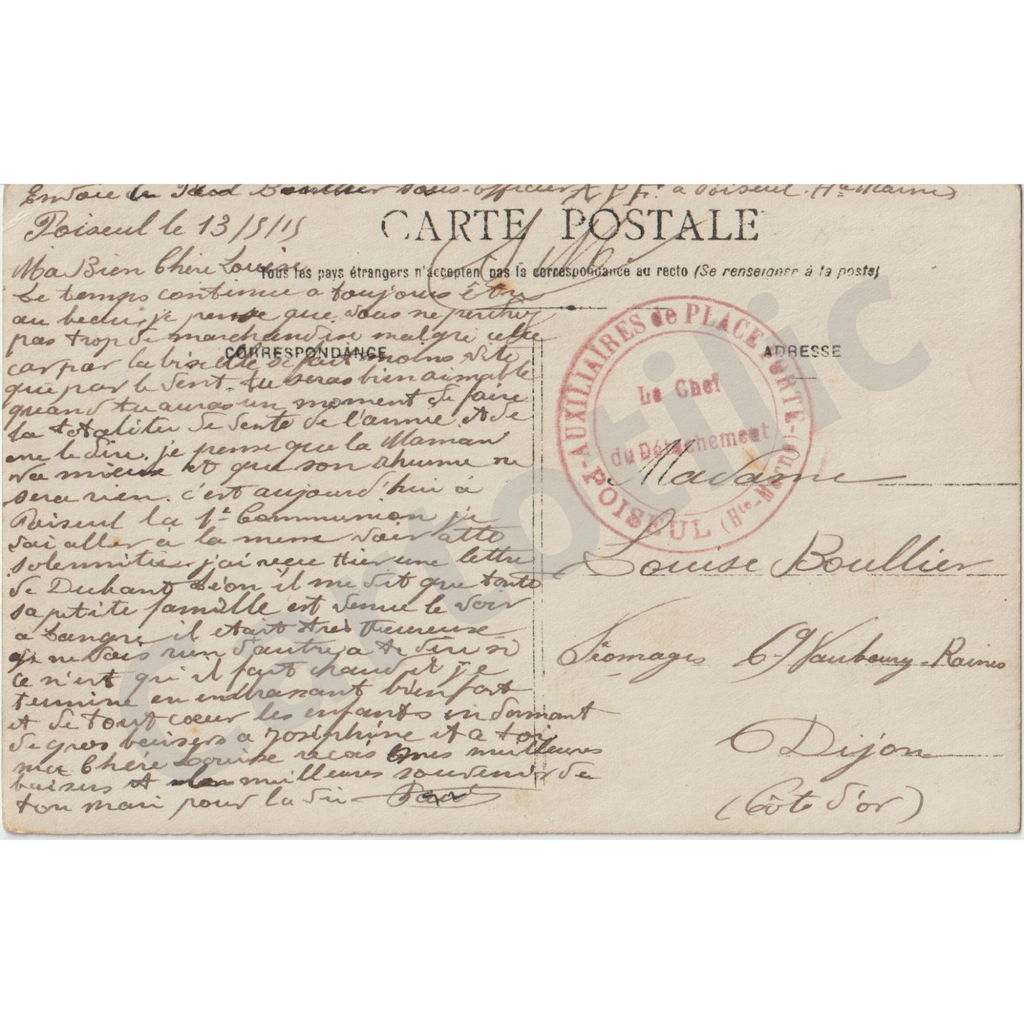 Envoie de Paul Boullier sous-officier à Poiseul (Hte Marne)
Poiseul le 13/5/15
CARTE POSTALE
Tous les pays étrangers n'acceptent pas la correspondance au recto (Se renseigner à la poste)
CORRESPONDANCE
ADRESSE
Ma Bien Chère Louise
Le temps continue a toujours être
au beau, je pense que vous ne perdrez
pas trop de marchandise malgré cela
car par la bise elle défait moins vite
que par le vent. tu seras bien aimable
quand tu auras un moment de faire
la totalité de vente de l'année. et de
me le dire. je pense que la Maman
va mieux et que son rhume ne
sera rien. c'est aujourd'hui à
Poiseul la 1e Communion je
vai aller à la messe voir
solennitée j'ai reçu Hier une lettre
de Duhant Léon il me dit que toute
sa petite famille est venue le voir
a Langres il etait très Heureuse
je ne vois rien d'autre a te dire si
ce n'est qu'il fait chaud je
termine en embrasant bien fort
et de tout coeur les enfants en donnant
de gros baisers a Joséphine et a toi
ma Chère Louise reçois mes meilleures
baisers et meilleures souvenirs de
ton mari pour la vie Paul
AUXILIAIRES de PLACE FORTE
Le Chef
du Détachement
POISEUL (Hte-Marne)
Madame
Louise Boullier
Fromages 69 Vaubourg-Raines
Dijon
(Côte d'or)
Cartolic